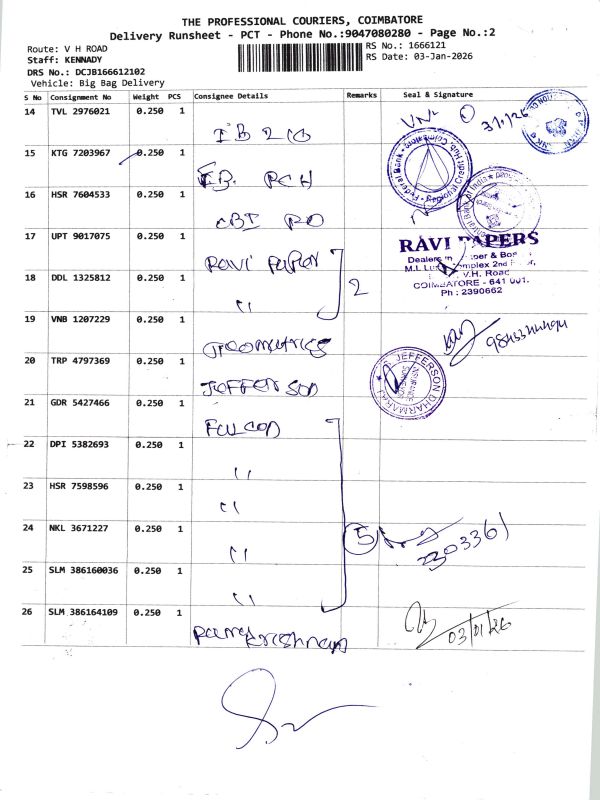 THE PROFESSIONAL COURIERS, COIMBATORE
Delivery Runsheet - PCT - Phone No.:9047080280 - Page No.:2
Route: V H ROAD
RS No.: 1666121
Staff: KENNADY
RS Date: 03-Jan-2026
DRS No.: DCJB166612102
Vehicle: Big Bag Delivery
S No Consignment No Weight PCS Consignee Details Remarks Seal & Signature
14 TVL 2976021 0.250 1
31/1/26
15 KTG 7203967 0.250 1
16 HSR 7604533 0.250 1
CBI RO
17 UPT 9017075 0.250 1
RAVI PAPERS
Ravi Paper
Dealers in
M.I. complex 2nd
V.H. Road
COIMBATORE - 641 001.
Ph : 2390662
18 DDL 1325812 0.250 1
2
"
19 VNB 1207229 0.250 1
Geometrics
20 TRP 4797369 0.250 1
JEFFERSON DHARMARAJ
Jefferson
21 GDR 5427466 0.250 1
Falcon
22 DPI 5382693 0.250 1
"
23 HSR 7598596 0.250 1
"
24 NKL 3671227 0.250 1
5
2303361
"
25 SLM 386160036 0.250 1
"
26 SLM 386164109 0.250 1
03/01/26